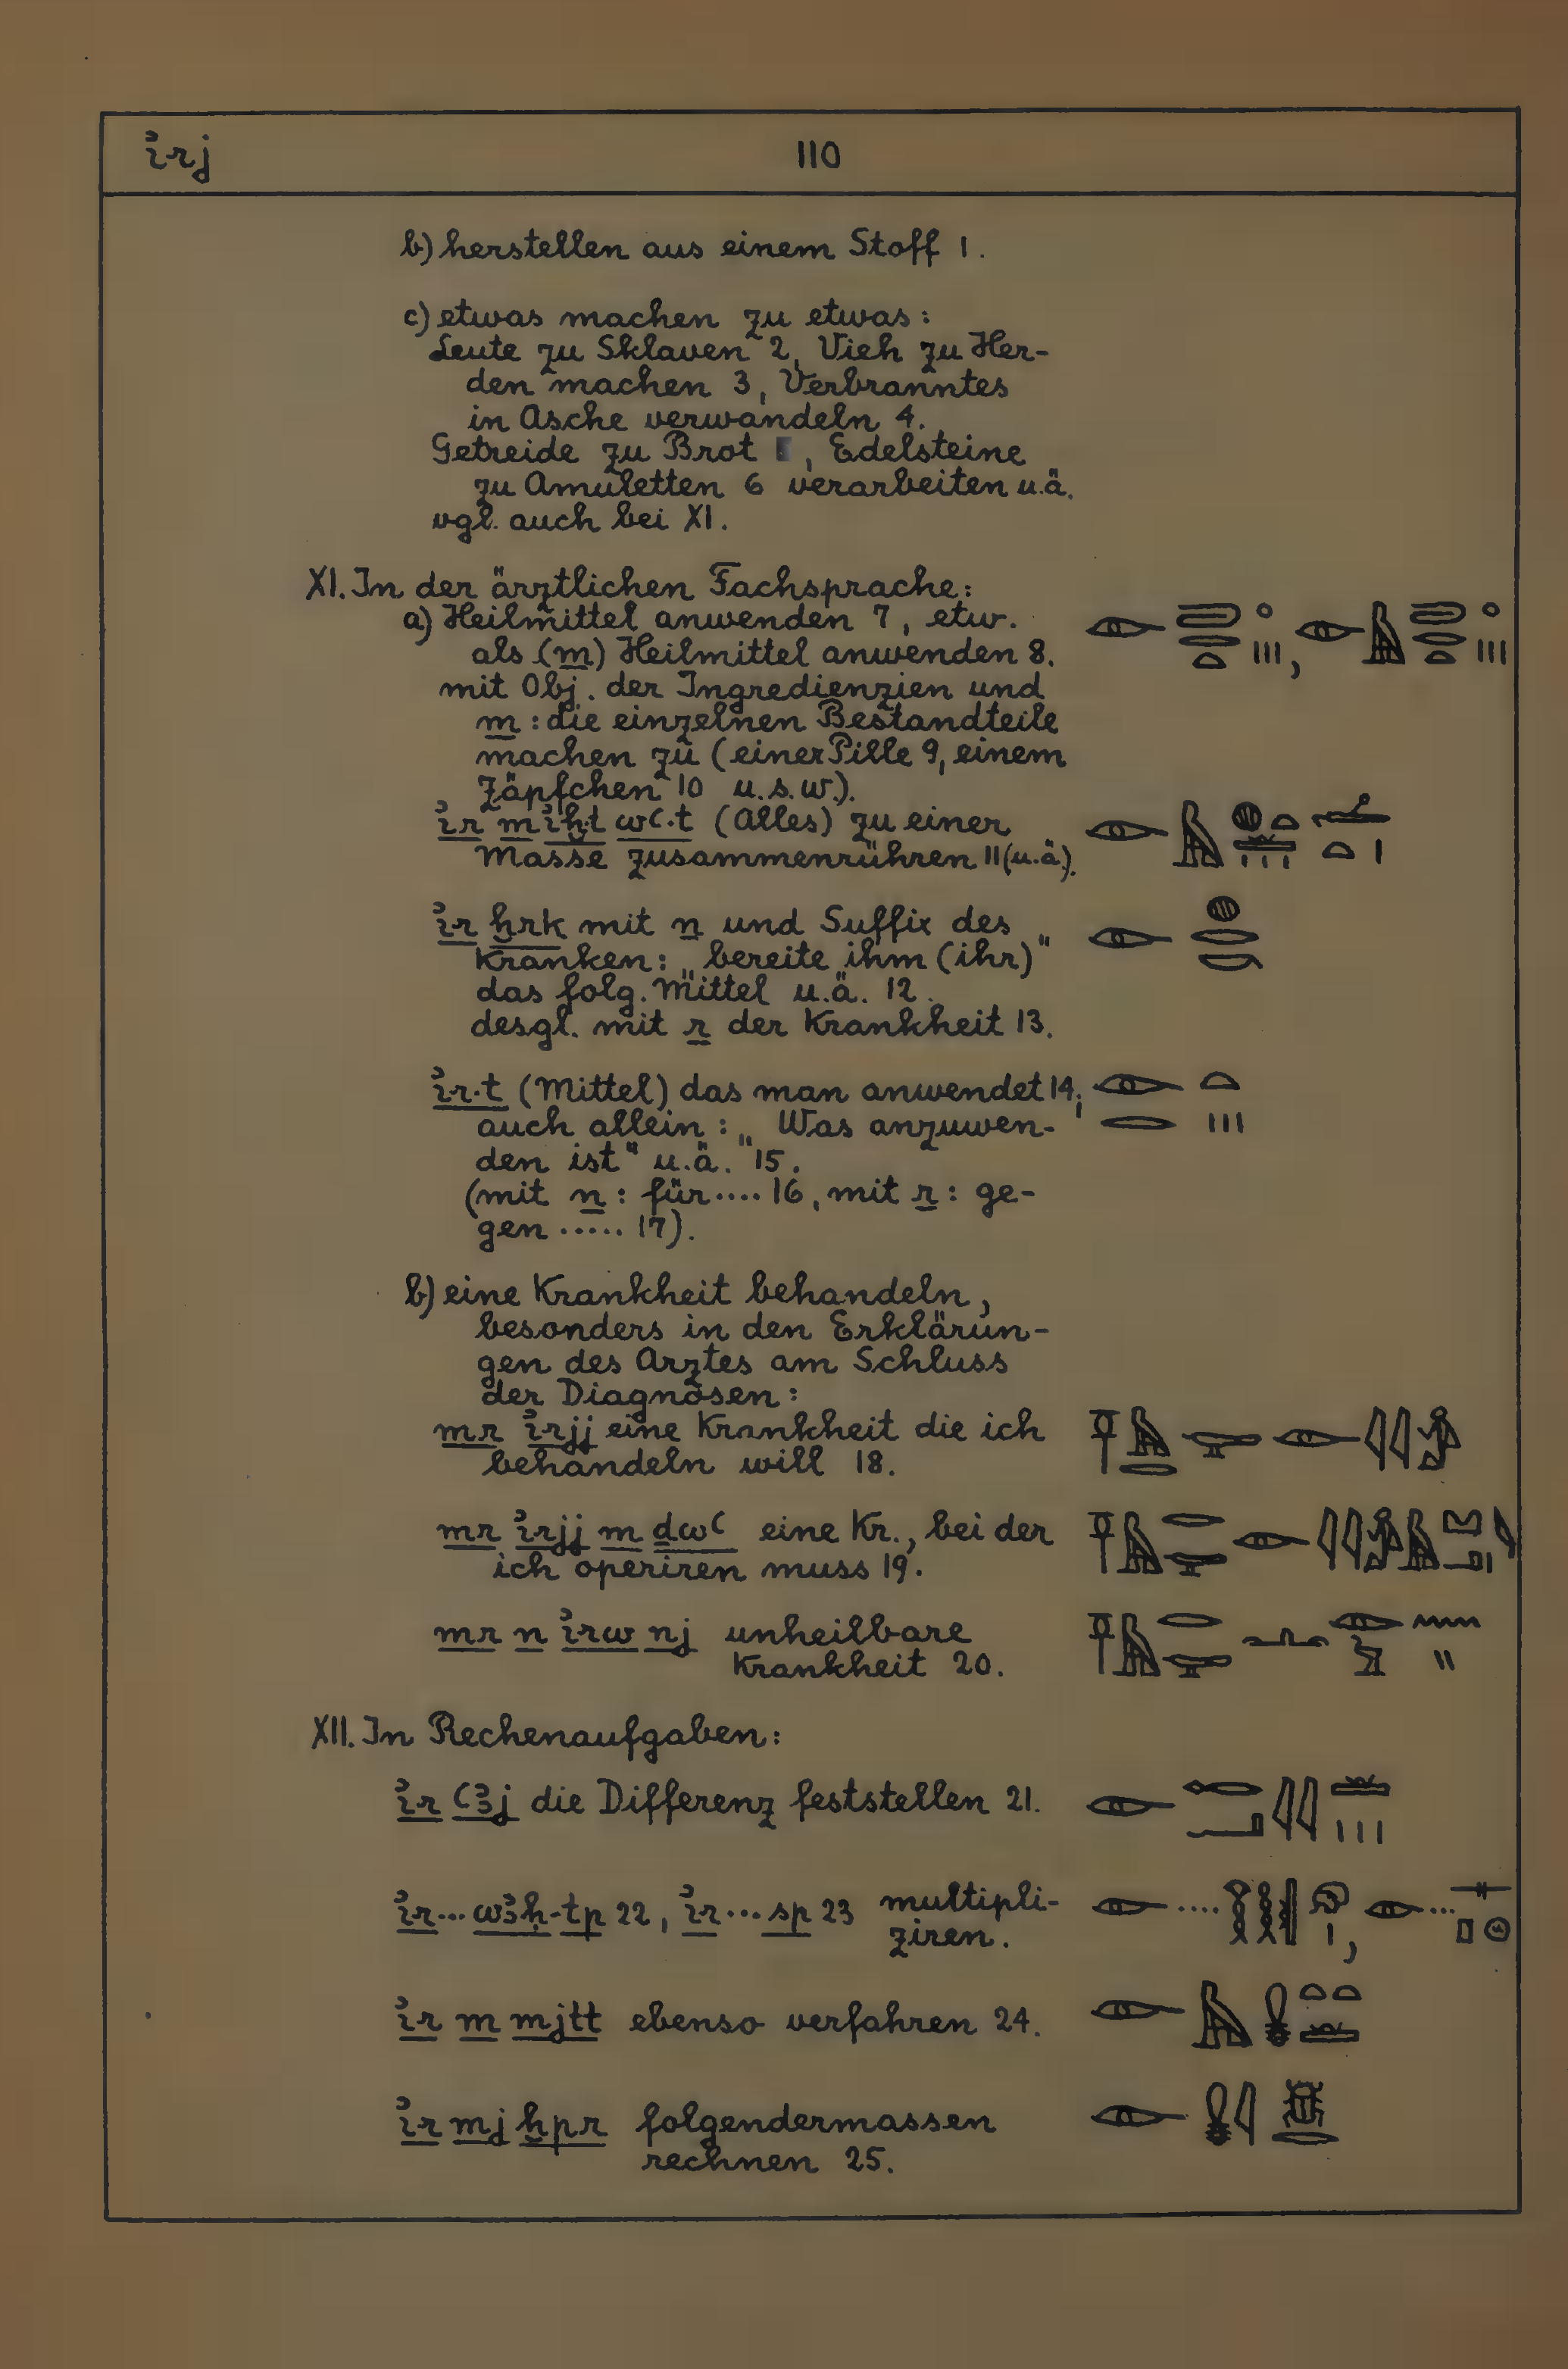 ı͗rj 110
b) herstellen aus einem Stoff 1.
c) etwas machen zu etwas:
Leute zu Sklaven 2, Vieh zu Her-
den machen 3, Verbranntes
in Asche verwandeln 4.
Getreide zu Brot , Edelsteine
zu Amuletten 6 verarbeiten u.ä.
vgl. auch bei XI.
XI. In der ärztlichen Fachsprache:
a) Heilmittel anwenden 7, etw.
als (m) Heilmittel anwenden 8.
mit Obj. der Ingredienzien und
m: die einzelnen Bestandteile
machen zu (einer Pille 9, einem
Zäpfchen 10 u.s.w.).
ı͗r m ı͗ḫt wꜥ.t (Alles) zu einer
Masse zusammenrühren 11 (u.ä.).
ı͗r ḫrk mit n und Suffix des
Kranken: „bereite ihm (ihr)"
das folg. Mittel u.ä. 12.
desgl. mit r der Krankheit 13.
ı͗r.t (Mittel) das man anwendet 14;
auch allein: „Was anzuwen-
den ist" u.ä. 15.
(mit n: für .... 16, mit r: ge-
gen ..... 17).
b) eine Krankheit behandeln,
besonders in den Erklärun-
gen des Arztes am Schluss
der Diagnosen:
mr ı͗rjj eine Krankheit die ich
behandeln will 18.
mr ı͗rjj m ḏwꜥ eine Kr., bei der
ich operiren muss 19.
mr n ı͗rw nj unheilbare
Krankheit 20.
XII. In Rechenaufgaben:
ı͗r ꜥꜣj die Differenz feststellen 21.
ı͗r ... wꜣḥ-tp 22, ı͗r ... sp 23 multipli-
ziren.
ı͗r m mjtt ebenso verfahren 24.
ı͗r mj ḫpr folgendermassen
rechnen 25.